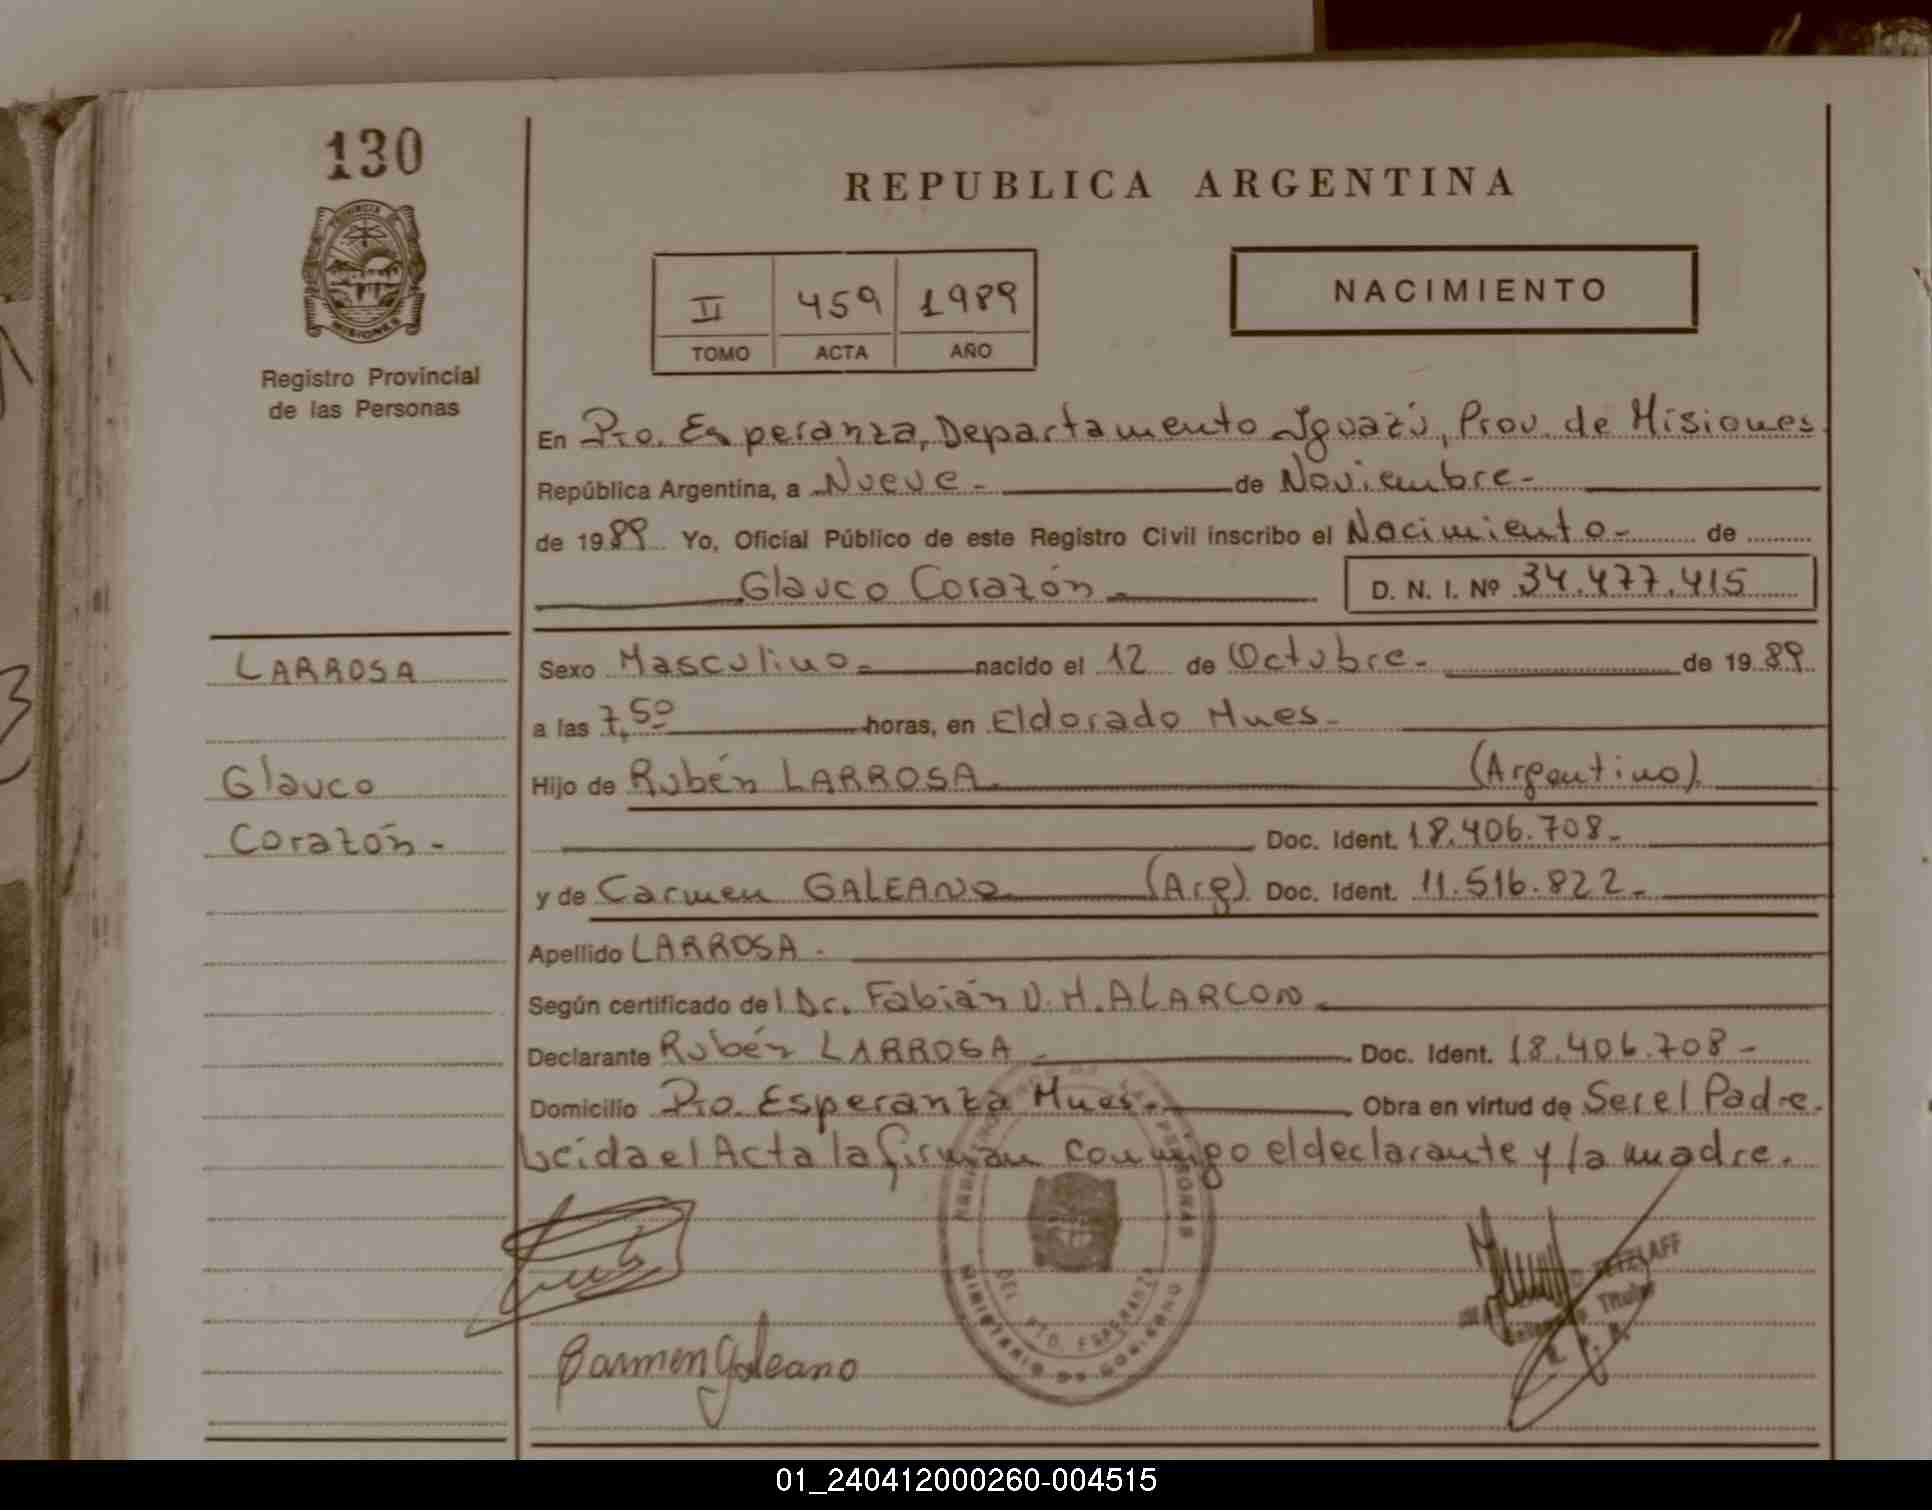 130
PROVINCIA DE
MISIONES
Registro Provincial
de las Personas
REPUBLICA ARGENTINA
II 459 1989
TOMO ACTA AÑO
NACIMIENTO
En Pto. Esperanza, Departamento Iguazú, Prov. de Misiones
República Argentina, a Nueve - de Noviembre -
de 1989 Yo, Oficial Público de este Registro Civil inscribo el Nacimiento - de
Glauco Corazón - D. N. I. Nº 34.477.415
LARROSA
Glauco
Corazón -
Sexo Masculino - nacido el 12 de Octubre - de 1989
a las 7,50 horas, en Eldorado Mnes -
Hijo de Rubén LARROSA (Argentino)
Doc. Ident. 18.406.708 -
y de Carmen GALEANO (Arg) Doc. Ident. 11.516.822 -
Apellido LARROSA -
Según certificado del Dr. Fabián V. H. ALARCON
Declarante Rubén LARROSA - Doc. Ident. 18.406.708 -
Domicilio Pto. Esperanza Mnes. - Obra en virtud de Ser el Padre.
Leida el Acta la firman conmigo el declarante y la madre.
MINISTERIO DE GOBIERNO
DEL PTO. ESPERANZA
PERSONAS
Titular
Carmen Galeano
01_240412000260-004515